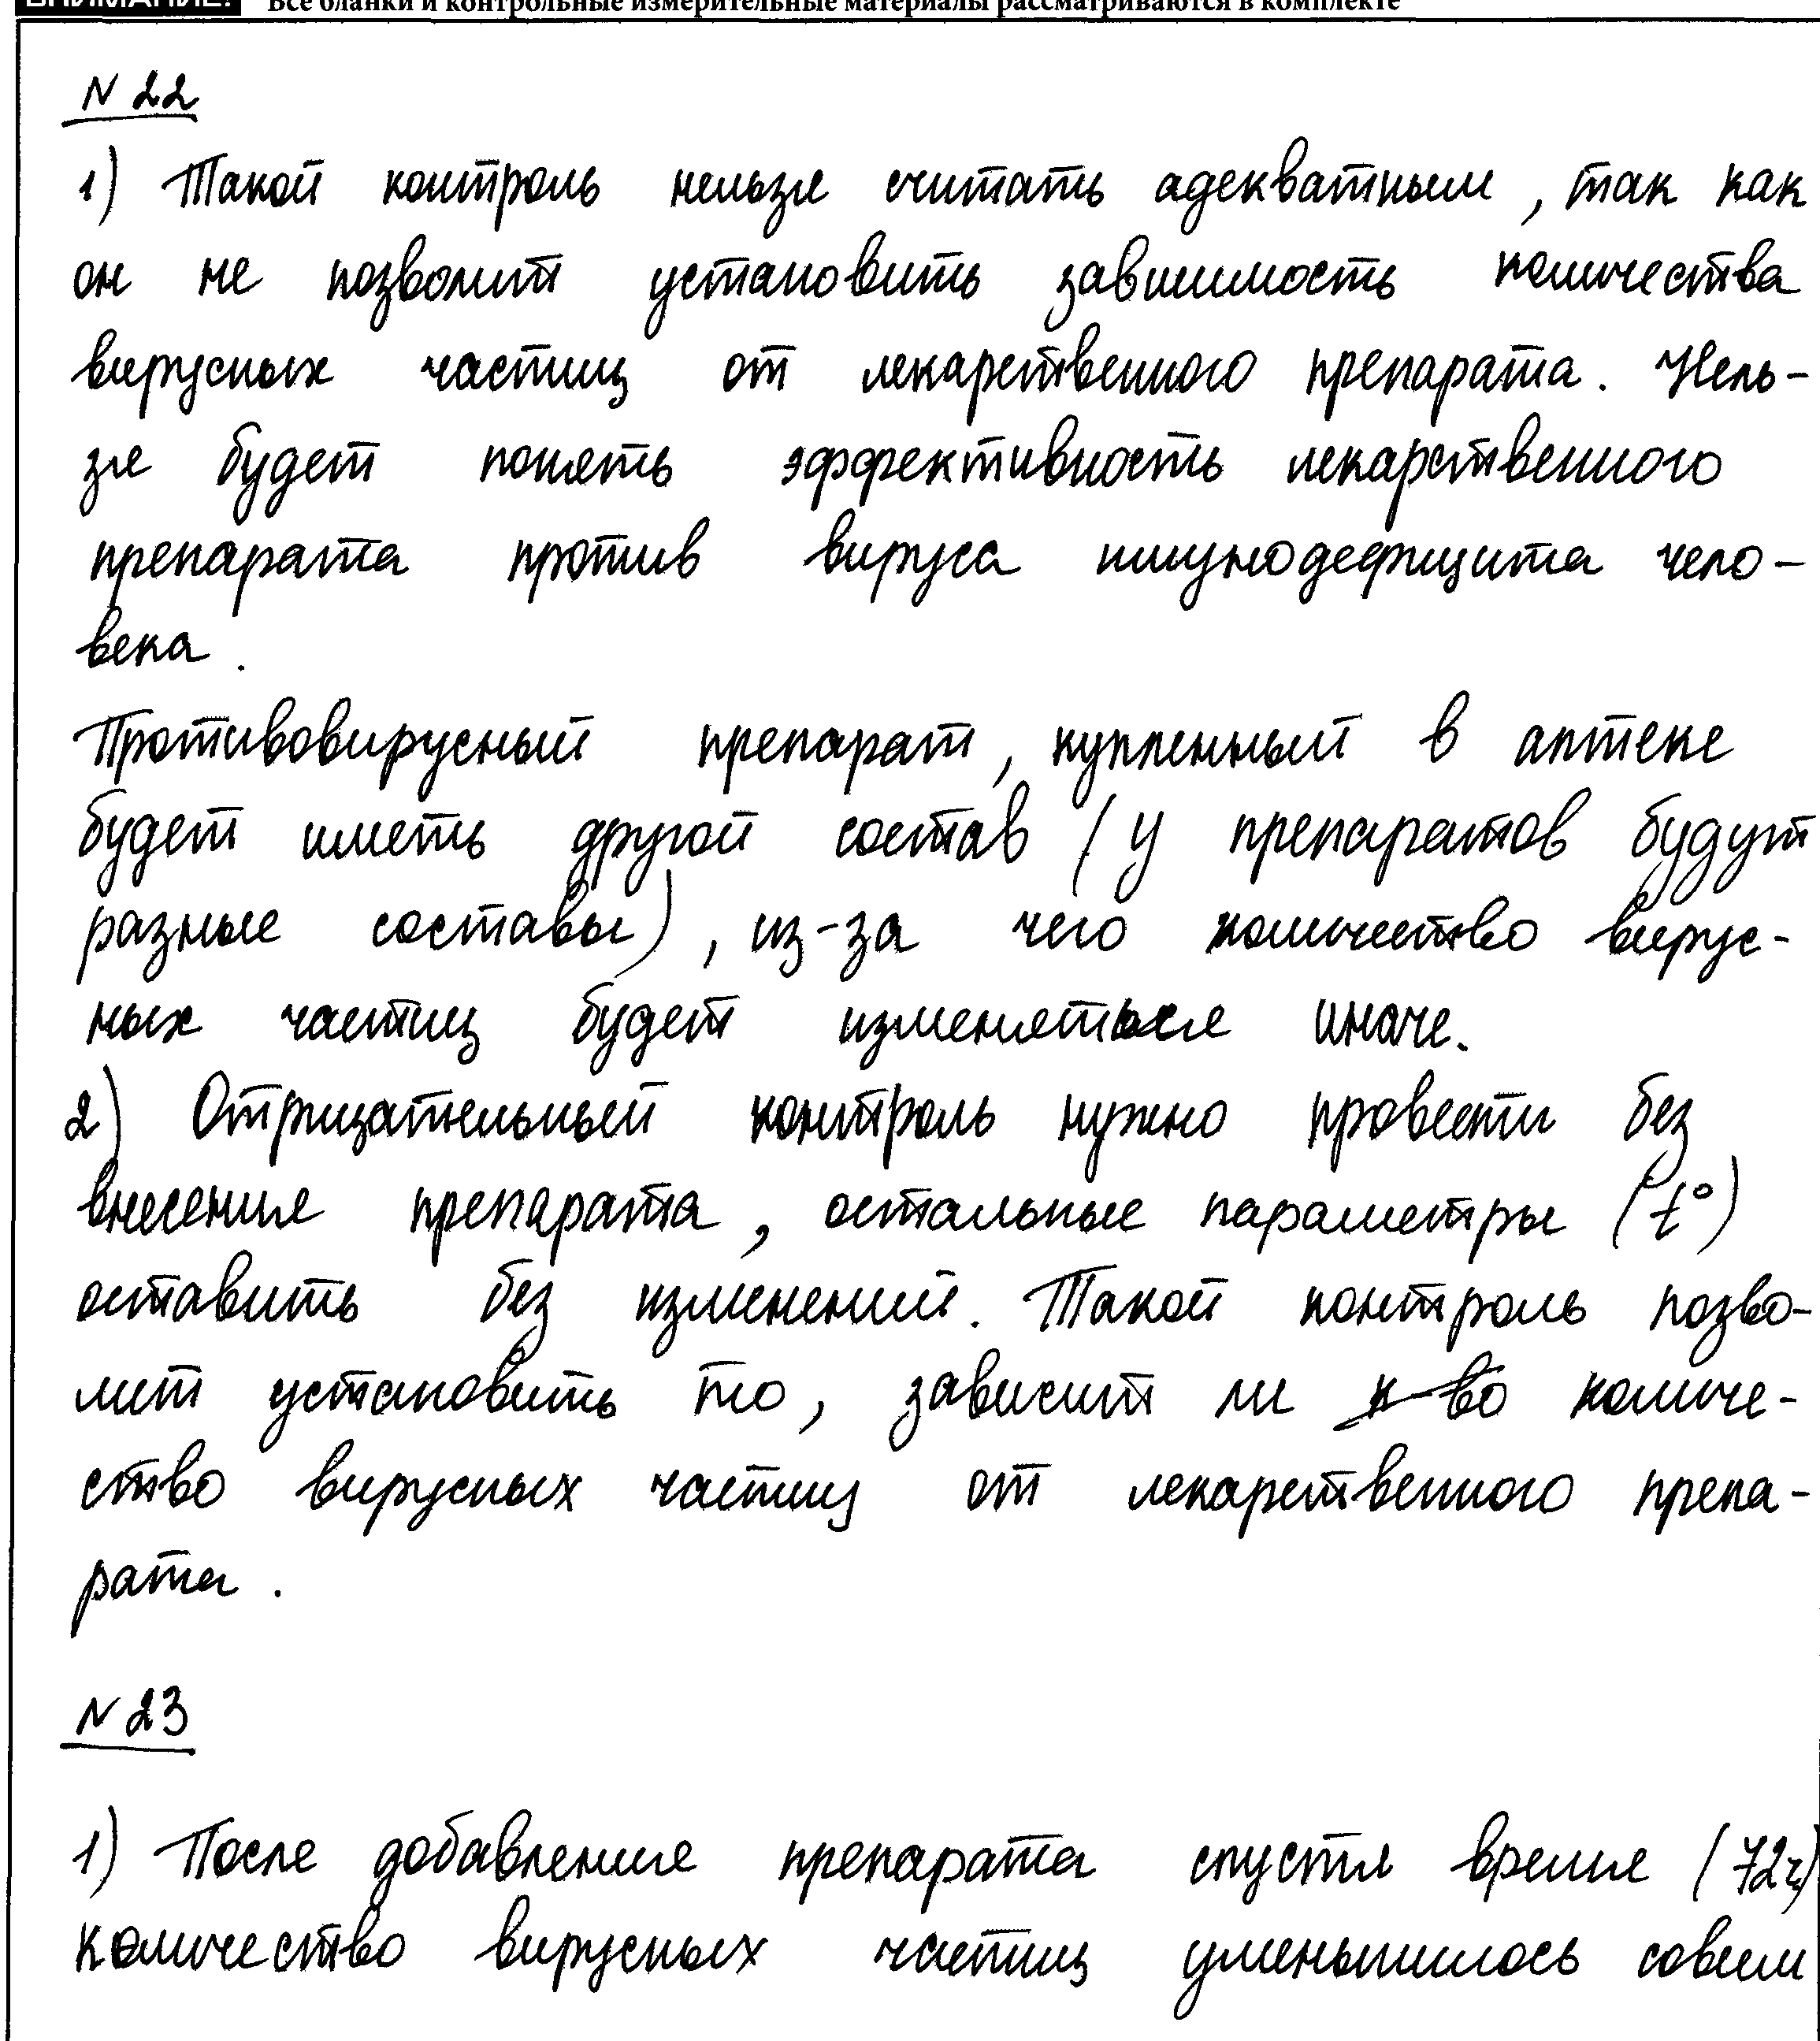 ВНИМАНИЕ! Все бланки и контрольные измерительные материалы рассматриваются в комплекте
N 22
1) Такой контроль нельзя считать адекватным, так как
он не позволит установить зависимость количества
вирусных частиц от лекарственного препарата. Нель-
зя будет понять эффективность лекарственного
препарата против вируса иммунодефицита чело-
века.
Противовирусный препарат, купленный в аптеке
будет иметь другой состав (у препаратов будут
разные составы), из-за чего количество вирус-
ных частиц будет изменяться иначе.
2) Отрицательный контроль нужно провести без
внесения препарата, остальные параметры (t°)
оставить без изменений. Такой контроль позво-
лит установить то, зависит ли к-во количе-
ство вирусных частиц от лекарственного препа-
рата.
N 23
1) После добавления препарата спустя время (72ч)
количество вирусных частиц уменьшилось совсем